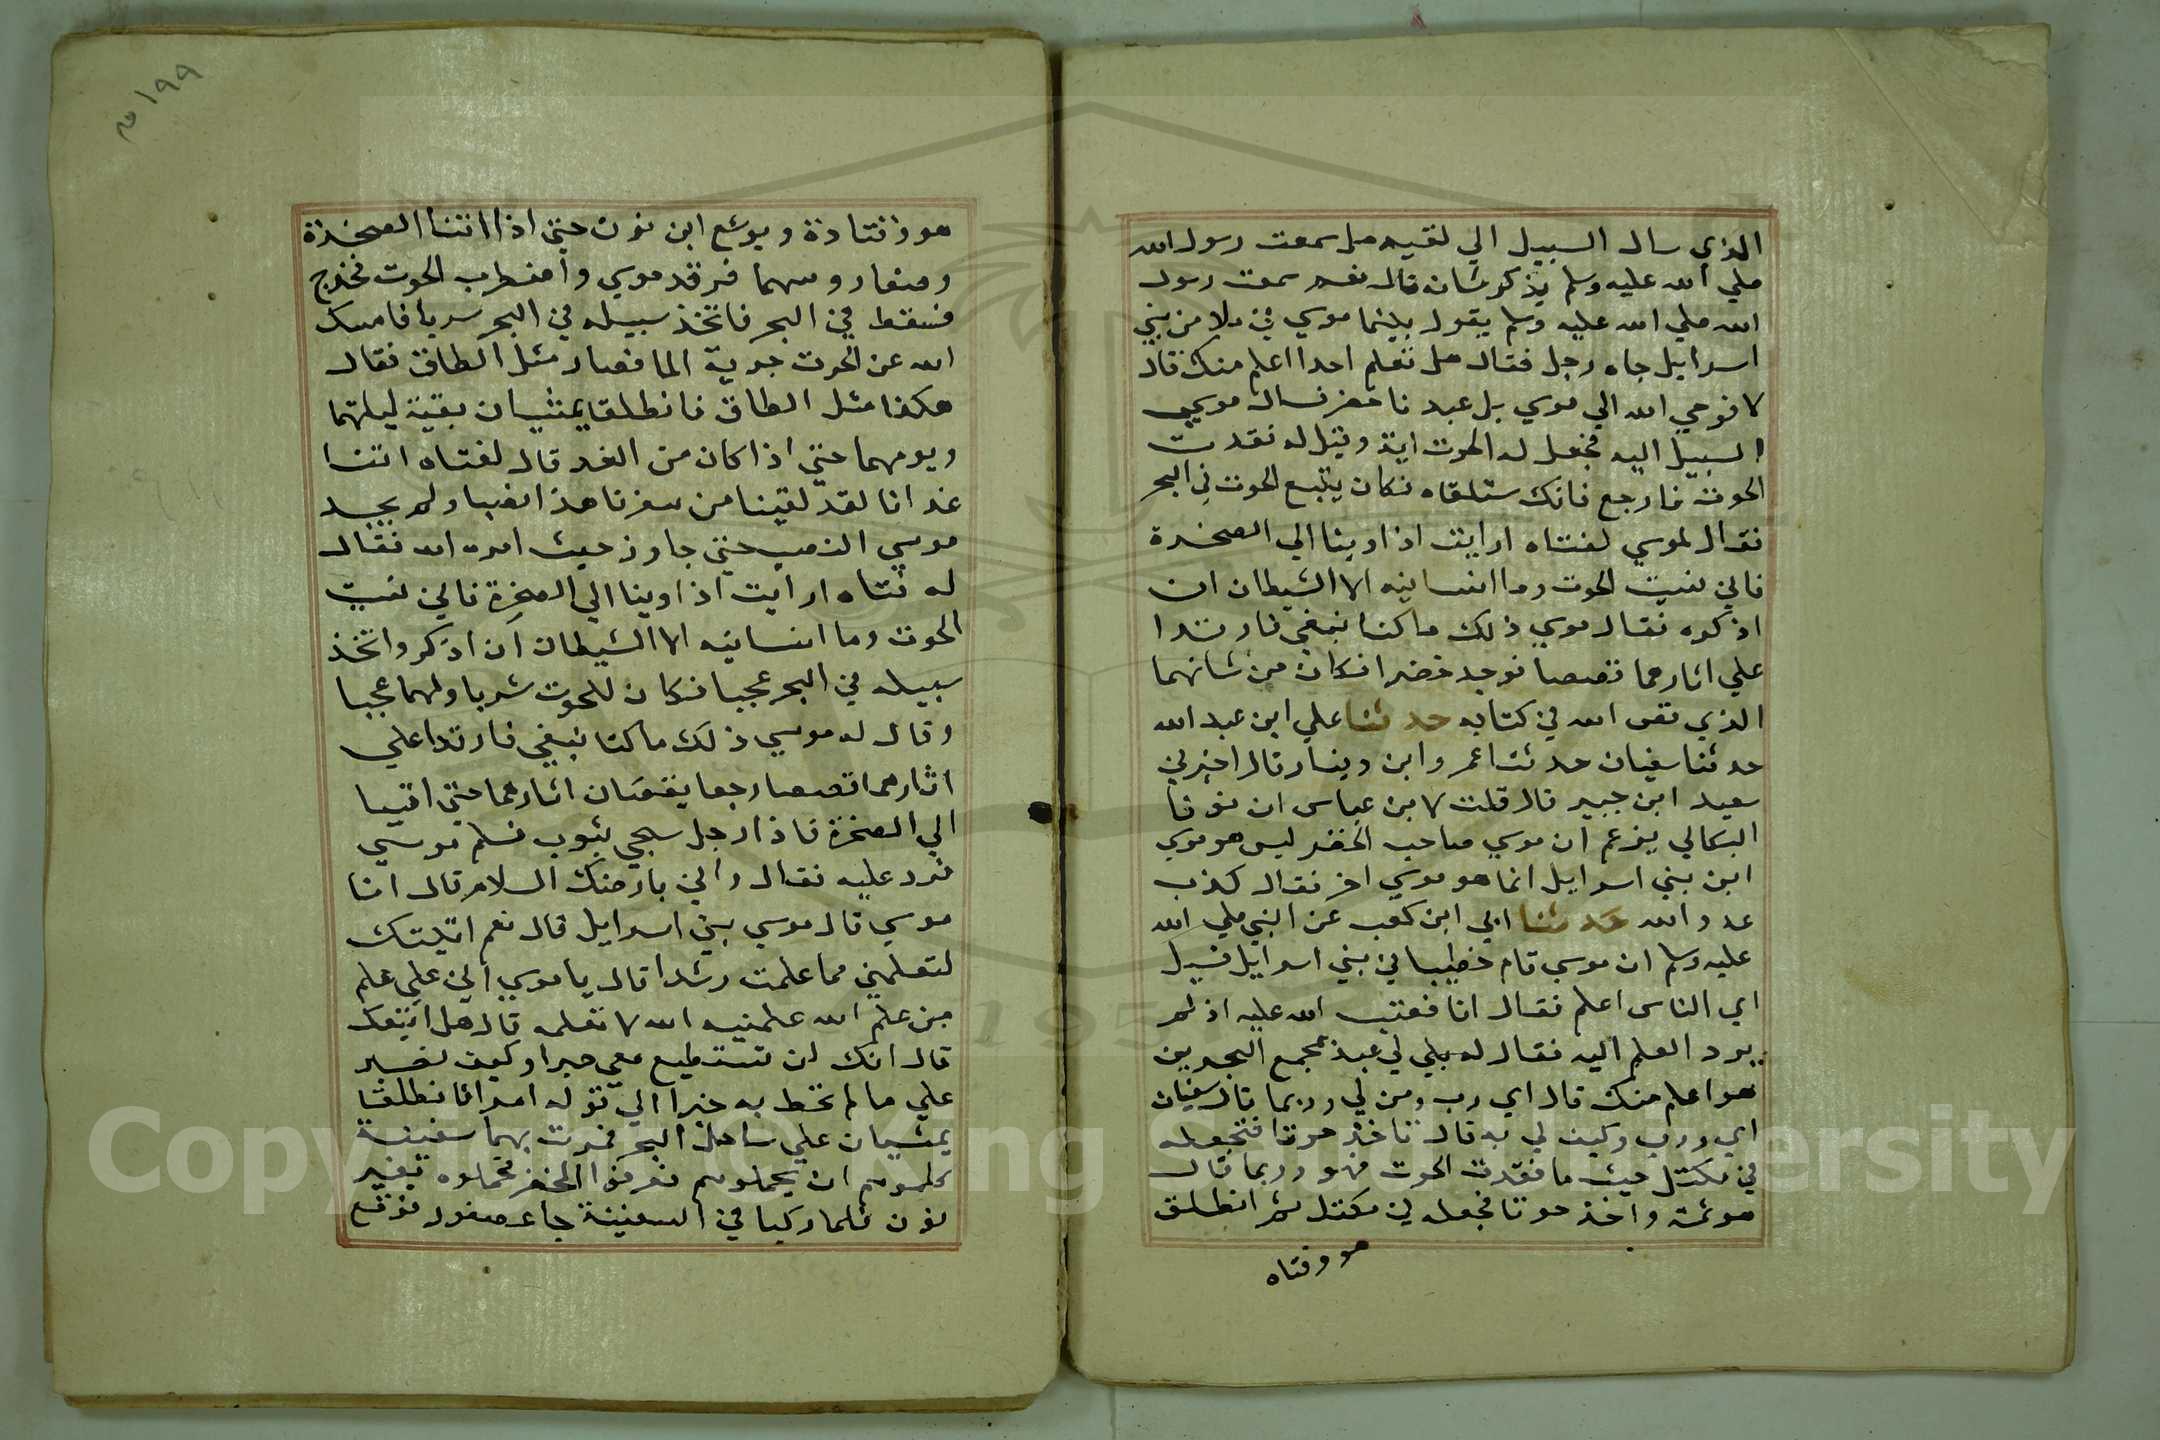 الذي سال السبيل الي لقيه هل سمعت رسول الله
صلي الله عليه وسلم يذكر شانه قال نعم سمعت رسول
الله صلي الله عليه وسلم يقول بينما موسي في ملا من بني
اسرايل جاه رجل فقال هل تعلم احدا اعلم منك قال
لا فوحي الله الي موسي بل عبدنا خضر فسال موسي
السبيل اليه فجعل له الحوت اية وقيل له فقدت
الحوت فارجع فانك ستلقاه فكان يتبع الحوت في البحر
فقال لموسي لفتاه ارايت اذ اوينا الي الصخرة
فاني نسيت الحوت وما انسانيه الا الشيطان ان
اذكره فقال موسي ذلك ما كنا نبغي فارتدا
علي اثارهما قصصا فوجد خضرا فكان من شانهما
الذي قص الله في كتابه حدثنا علي ابن عبد الله
حدثنا سفيان حدثنا عمرو ابن دينار قال اخبرني
سعيد ابن جبير قال قلت لابن عباس ان نوفا
البكالي يزعم ان موسي صاحب الخضر ليس هو موسي
ابن بني اسرايل انما هو موسي اخر فقال كذب
عدو الله حدثنا ابي ابن كعب عن النبي صلي الله
عليه وسلم ان موسي قام خطيبا في بني اسرايل فسيل
اي الناس اعلم فقال انا فعتب الله عليه اذ لم
يرد العلم اليه فقال له بلي لي عبد بمجمع البحرين
هو اعلم منك قال اي رب ومن لي وربما قال سفيان
اي ورب وكيف لي به قال تاخذ حوتا فتجعله
في مكتل حيث ما فقدت الحوت فهو وربما قال
هو ثمة واخذ حوتا فجعله في مكتل ثم انطلق
هو وفتاه
١٩٩
هو وفتادة ويوشع ابن نون حتي اذا اتنا الصخرة
وضعا روسهما فرقد موسي واضطرب الحوت فخرج
فسقط في البحر فاتخذ سبيله في البحر سربا فامسك
الله عن الحوت جرية الما فصار مثل الطاق فقال
هكذا مثل الطاق فانطلقا يمشيان بقية ليلتهما
ويومهما حتي اذا كان من الغد قال لفتاه اتنا
غدانا لقد لقينا من سفرنا هذا نصبا ولم يجد
موسي النصب حتي جاوز حيث امره الله فقال
له فتاه ارايت اذ اوينا الي الصخرة فاني نسيت
الحوت وما انسانيه الا الشيطان ان اذكر واتخذ
سبيله في البحر عجبا فكان للحوت سربا ولهما عجبا
وقال له موسي ذلك ما كنا نبغي فارتدا علي
اثارهما قصصا رجعا يقصان اثارهما حتي اتيا
الي الصخرة فاذا رجل سجي بثوب فسلم موسي
فرد عليه فقال واني بارضك السلام قال انا
موسي قال موسي بني اسرايل قال نعم اتيتك
لتعلمني مما علمت رشدا قال يا موسي اني علي علم
من علم الله علمنيه الله لا تعلمه قال هل اتبعك
قال انك لن تستطيع معي صبرا وكيف تصبر
علي ما لم تحط به خبرا الي قوله امرا فانطلقا
يمشيان علي ساحل البحر فمرت بهما سفينة
كلموهم ان يحملوهم فعرفوا الخضر فحملوه بغير
نون فلما ركبا في السفينة جا عصفور فوقع